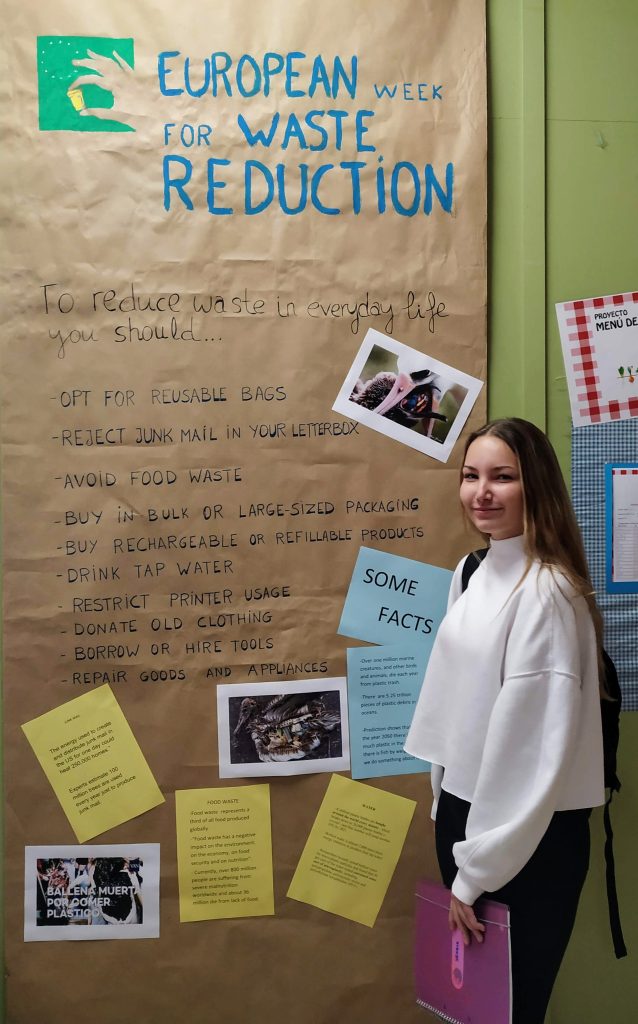 EUROPEAN WEEK
FOR WASTE
REDUCTION
To reduce waste in everyday life
you should...
- OPT FOR REUSABLE BAGS
- REJECT JUNK MAIL IN YOUR LETTERBOX
- AVOID FOOD WASTE
- BUY IN BULK OR LARGE-SIZED PACKAGING
- BUY RECHARGEABLE OR REFILLABLE PRODUCTS
- DRINK TAP WATER
- RESTRICT PRINTER USAGE
- DONATE OLD CLOTHING
- BORROW OR HIRE TOOLS
- REPAIR GOODS AND APPLIANCES
SOME
FACTS
-Over one million marine
creatures, and other birds
and animals, die each year
from plastic trash.
-There are 5.25 trillion
pieces of plastic debris in
oceans.
-Prediction shows that
the year 2050 there
much plastic in the
there is fish by we
we do something about
JUNK MAIL
The energy used to create
and distribute junk mail in
the US for one day could
heat 250,000 homes.
Experts estimate 100
million trees are used
every year just to produce
junk mail.
FOOD WASTE
Food waste represents a
third of all food produced
globally.
"Food waste has a negative
impact on the environment,
on the economy, on food
security and on nutrition".
- Currently, over 800 million
people are suffering from
severe malnutrition
worldwide and about 36
million die from lack of food.
WATER
BALLENA MUERTA
POR COMER
PLÁSTICO
PROYECTO
MENÚ DE